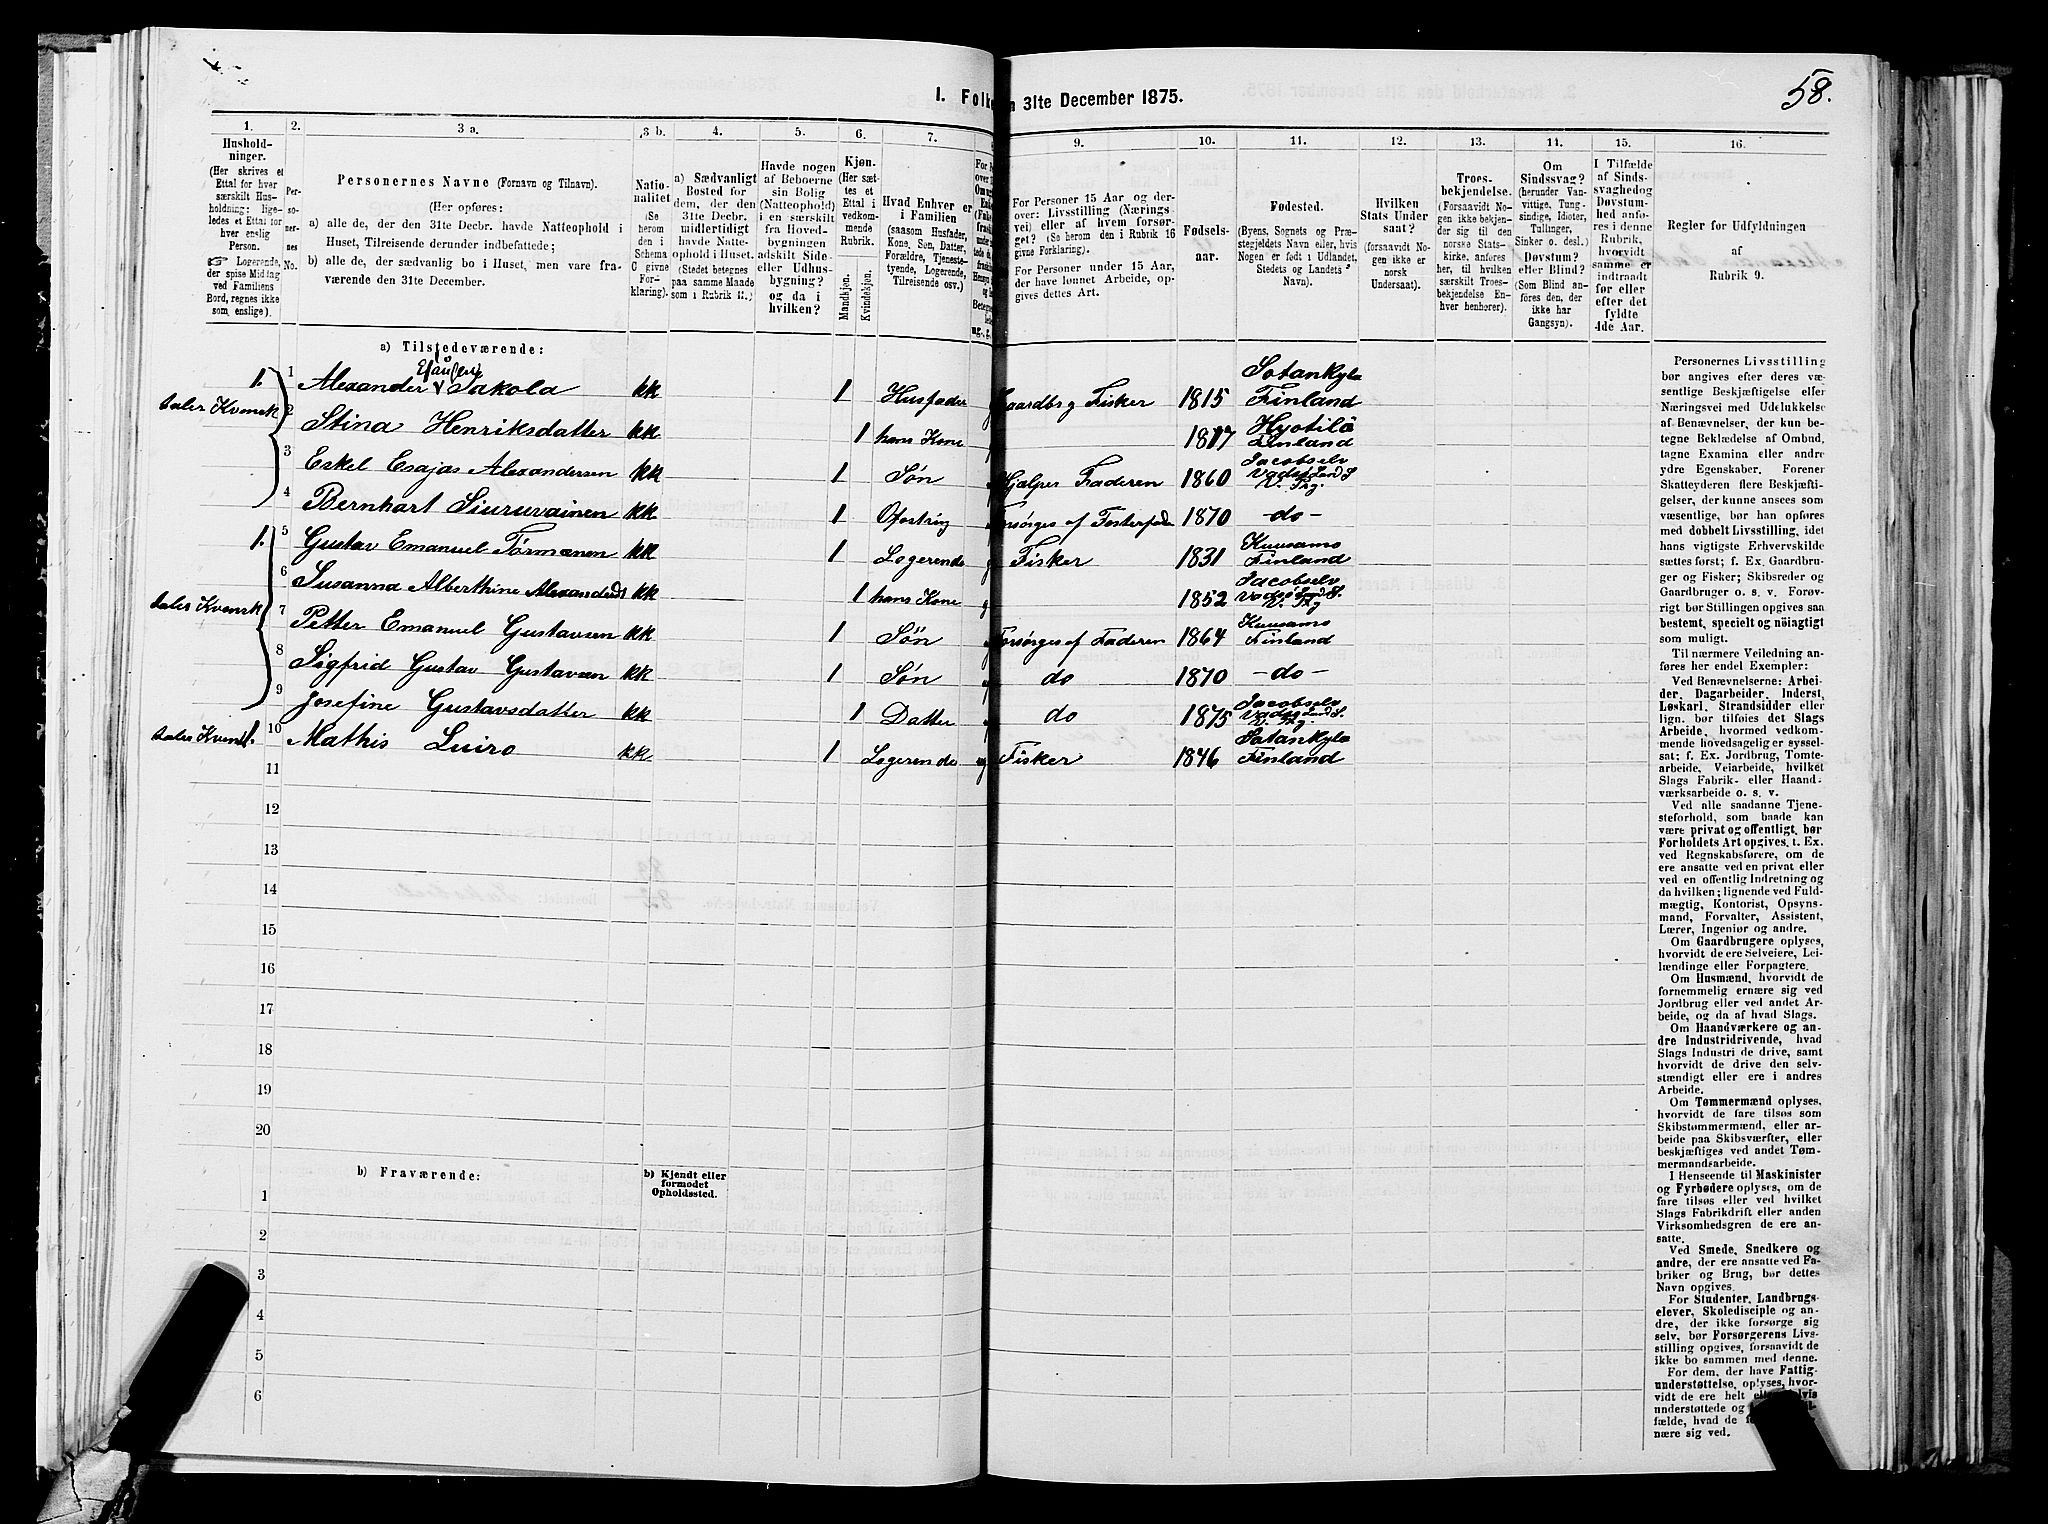 58.
I. Folke
n 31te December 1875.
1. 2. 3 a. 3 b. 4. 5. 6. 7. 9. 10. 11. 12. 13. 14. 15. 16.
Hushold-
ninger.
(Her skrives et
Ettal for hver
særskilt Hus-
holdning; lige-
ledes et Ettal for
hver enslig
Person.
☞ Logerende,
der spise Middag
ved Familiens
Bord, regnes ikke
som enslige).
Per-
so-
ner-
nes
No.
Personernes Navne (Fornavn og Tilnavn).
(Her opføres:
a) alle de, der den 31te Decbr. havde Natteophold i
Huset, Tilreisende derunder indbefattede;
b) alle de, der sædvanlig bo i Huset, men vare fra-
værende den 31te December.
Natio-
nalitet
(Se
herom
den i
Schema
C givne
For-
klaring).
a) Sædvanligt
Bosted for
dem, der den
31te Decbr.
midlertidigt
havde Natte-
ophold i Huset.
(Stedet betegnes
paa samme Maade
som i Rubrik 11.)
Havde nogen
af Beboerne
sin Bolig
(Natteophold)
i en særskilt
fra Hoved-
bygningen
adskilt Side-
eller Udhus-
bygning?
og da i
hvilken?
Kjøn.
(Her sæt-
tes et
Ettal i
vedkom-
mende
Rubrik.
Mandkjøn.
Kvindekjøn.
Hvad Enhver er
i Familien
(saasom Husfader,
Kone, Søn, Datter,
Forældre, Tjeneste-
tyende, Logerende,
Tilreisende osv.)
For Personer 15 Aar og der-
over: Livsstilling (Nærings
vei) eller af hvem forsør-
get? (Se herom den i Rubrik 16
givne Forklaring).
For Personer under 15 Aar,
der have lønnet Arbeide, op-
gives dettes Art.
Fødsels-
aar.
Fødested.
(Byens, Sognets og Præ-
stegjeldets Navn eller, hvis
Nogen er født i Udlandet,
Stedets og Landets
Navn).
Hvilken
Stats Under
saat?
(forsaavidt No-
gen ikke er
norsk
Undersaat).
Troes-
bekjendelse.
(Forsaavidt No-
gen ikke bekjen-
der sig til den
norske Stats-
kirke, anføres
her, til hvilken
særskilt Troes-
bekjendelse En-
hver henhører).
Om
Sindssvag?
(herunder Van-
vittige, Tung-
sindige, Idioter,
Tullinger,
Sinker o. desl.)
Døvstum?
eller Blind?
(Som Blind an-
føres den, der
ikke har
Gangsyn).
I Tilfælde
af Sinds-
svaghedog
Døvstum-
hed anfø-
res i denne
Rubrik,
hvorvidt
samme er
indtraadt
før eller
efter det
fyldte
4de Aar.
Regler for Udfyldningen
af
Rubrik 9.
a) Tilstedeværende:
1. 1 Alexander Sakola kk 1 Husfader Gaardbrg Fisker 1815 Sotankyla Finland
taler Kvensk
2 Stina Henriksdatter kk 1 hans Kone 1817 Hyotilä Finland
3 Eskel Esajas Alexandersen kk 1 Søn Hjælper Faderen 1860 Jacobselv Vadsø Land S. V. Fg.
4 Bernhart Siuruvainen kk 1 Opfostring Forsørges af Fosterfade 1870 -do-
1. 5 Gustav Emanuel Törmænen kk 1 Logerende g Fisker 1831 Kuusamo Finland
6 Susanna Alberthine Alexandersd kk 1 hans Kone g 1852 Jacobselv Vadsø Land S. V. Fg
taler Kvensk
7 Petter Emanuel Gustavsen kk 1 Søn Forsørges af Faderen 1864 Kuusamo Finland
8 Sigfrid Gustav Gustavsen kk 1 Søn do 1870 -do-
9 Josefine Gustavsdatter kk 1 Datter do 1875 Jacobselv Vadsø Land S. V. Fg.
taler Kvensk 1. 10 Mathis Luiro kk 1 Logerende ug Fisker 1846 Sotankyla Finland
11
12
13
14
15
16
17
18
19
20
b) Fraværende:
b) Kjendt eller
formodet
Opholdssted.
1
2
3
4
5
6
Personernes Livsstilling
bør angives efter deres væ-
sentlige Beskjæftigelse eller
Næringsvei med Udelukkelse
af Benævnelser, der kun be-
tegne Beklædelse af Ombud,
tagne Examina eller andre
ydre Egenskaber. Forener
Skatteyderen flere Beskjæfti-
gelser, der kunne ansees som
væsentlige, bør han opføres
med dobbelt Livsstilling, idet
hans vigtigste Erhvervskilde
sættes først; f. Ex. Gaardbru-
ger og Fisker; Skibsreder og
Gaardbruger o. s. v. Forøv-
rigt bør Stillingen opgives saa
bestemt, specielt og nøiagtigt
som muligt.
Til nærmere Veiledning an-
føres her endel Exempler:
Ved Benævnelserne: Arbei-
der, Dagarbeider, Inderst,
Løskarl, Strandsidder eller
lign. bør tilføies det Slags
Arbeide, hvormed vedkom-
mende hovedsagelig er syssel-
sat; f. Ex. Jordbrug, Tomte-
arbeide, Veiarbeide, hvilket
Slags Fabrik- eller Haand-
værksarbeide o. s. v.
Ved alle saadanne Tjene-
steforhold, som baade kan
være privat og offentligt, bør
Forholdets Art opgives, t. Ex.
ved Regnskabsførere, om de
ere ansatte ved en privat eller
ved en offentlig Indretning og
da hvilken; lignende ved Fuld-
mægtig, Kontorist, Opsyns-
mand, Forvalter, Assistent,
Lærer, Ingeniør og andre.
Om Gaardbrugere oplyses,
hvorvidt de ere Selveiere, Lei-
lændinge eller Forpagtere.
Om Husmænd, hvorvidt de
fornemmelig ernære sig ved
Jordbrug eller ved andet Ar-
beide, og da af hvad Slags.
Om Haandværkere og an-
dre Industridrivende, hvad
Slags Industri de drive, samt
hvorvidt de drive den selv-
stændigt eller ere i andres
Arbeide.
Om Tømmermænd oplyses,
hvorvidt de fare tilsøs som
Skibstømmermænd, eller ar-
beide paa Skibsværfter, eller
beskjæftiges ved andet Tøm-
mermandsarbeide.
I Henseende til Maskinister
og Fyrbødere oplyses, om de
fare tilsøs eller ved hvilket
Slags Fabrikdrift eller anden
Virksomhedsgren de ere an-
satte.
Ved Smede, Snedkere og
andre, der ere ansatte ved Fa-
briker og Brug, bør dettes
Navn opgives.
For Studenter, Landbrugs-
elever, Skoledisciple og an-
dre, der ikke forsørge sig
selv, bør Forsørgerens Livs-
stilling opgives, forsaavidt de
ikke bo sammen med denne.
For dem, der have Fattig-
understøttelse, oplyses, hvor-
vidt de ere helt
understøttede og
fælde, hvad de
nære sig ved.